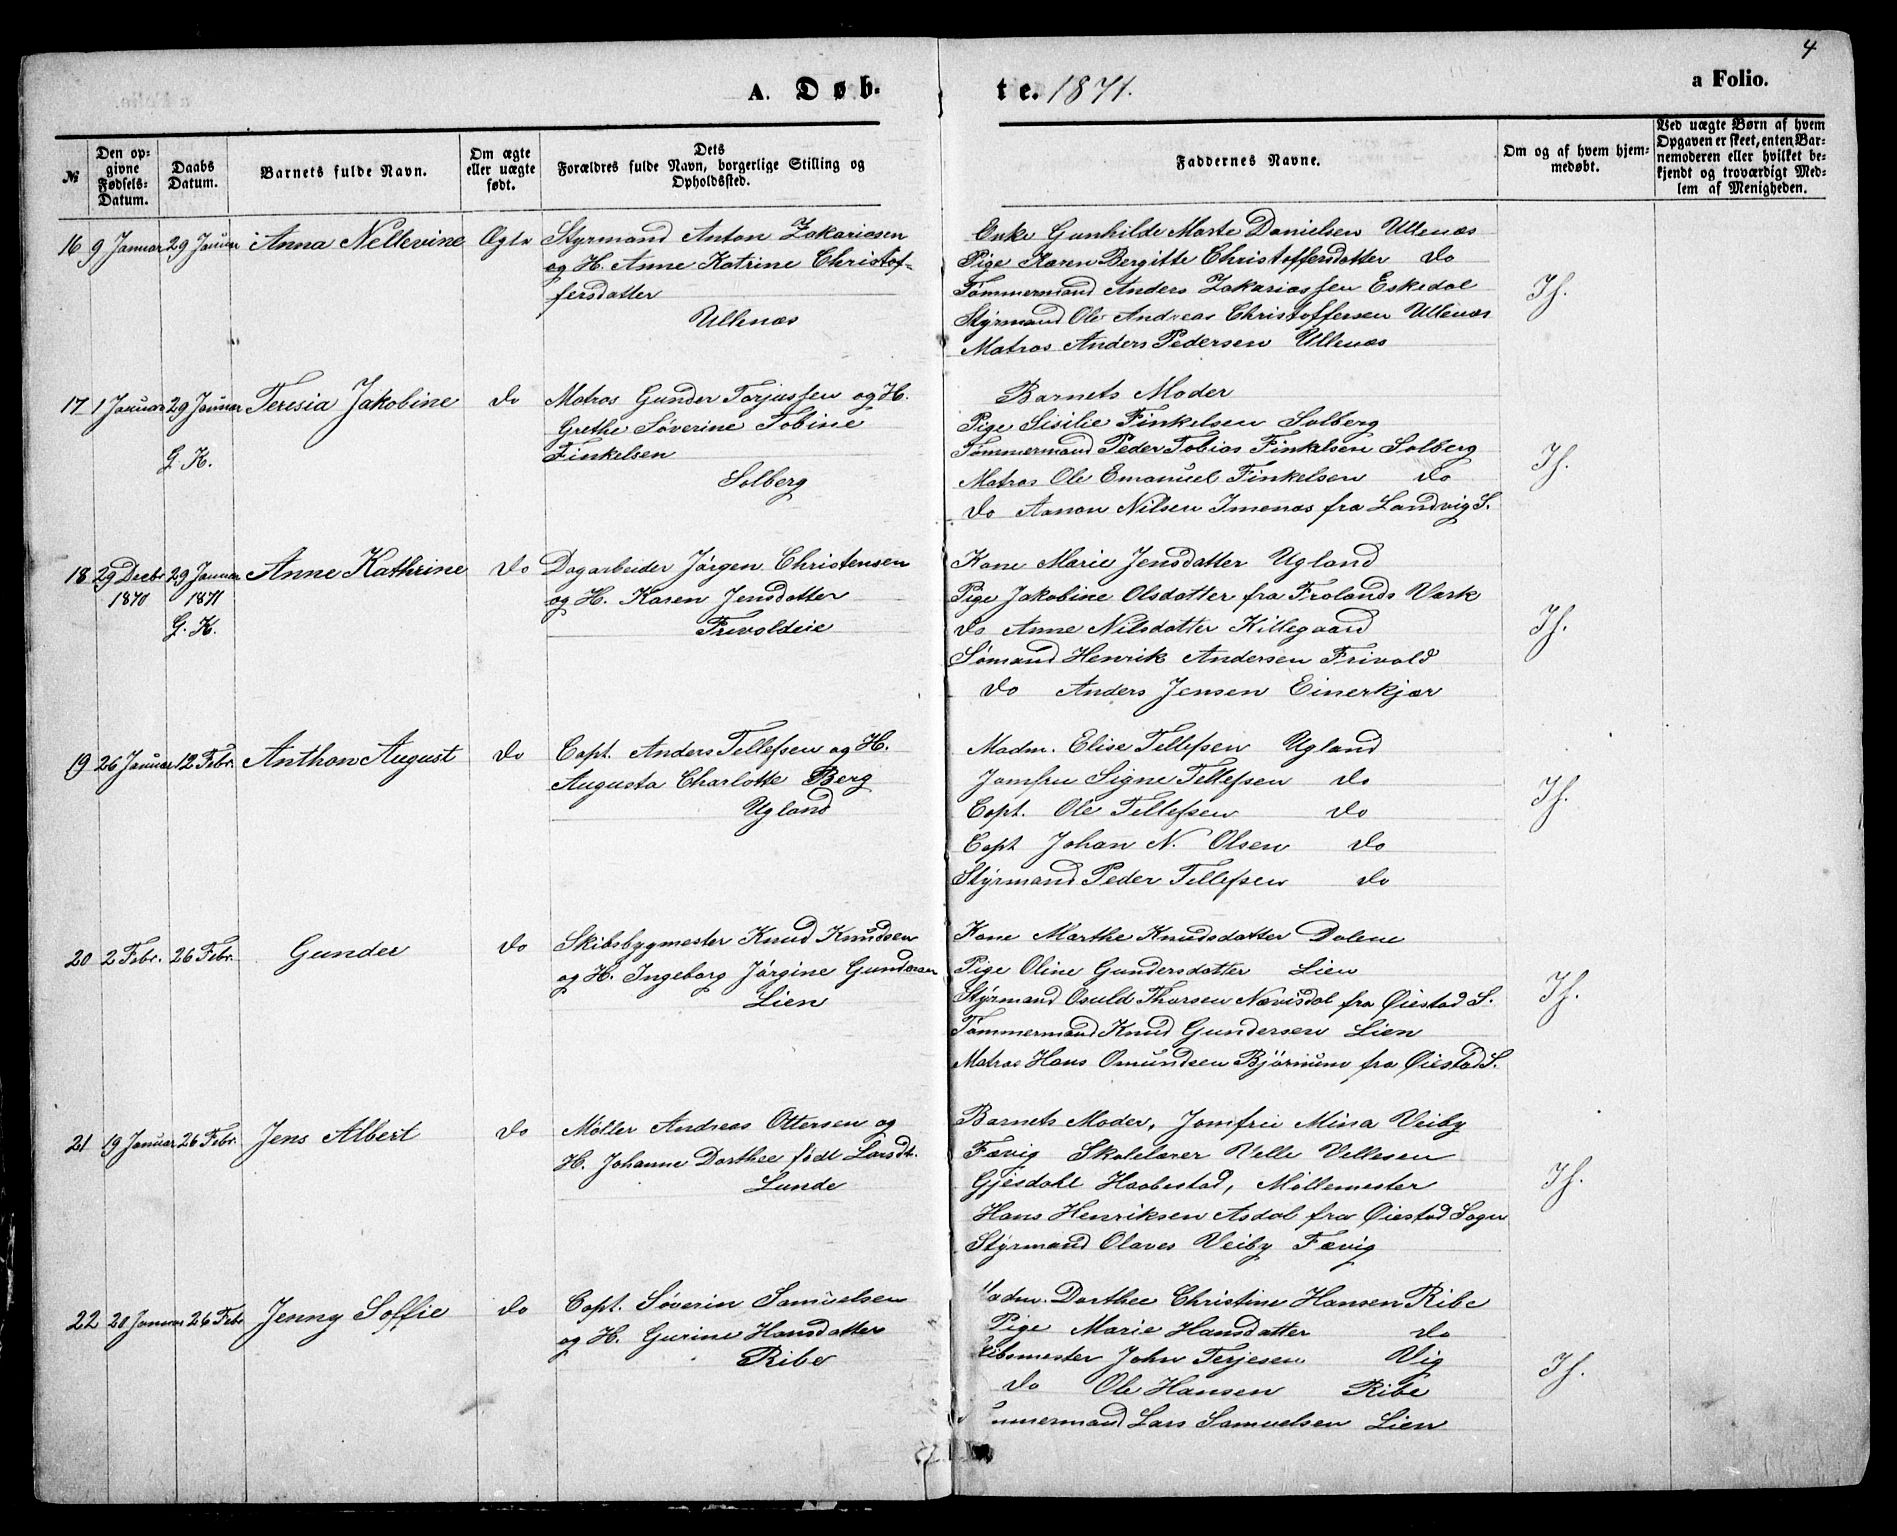 4
A. Døb-
te. 1871.
a Folio.
№
Den op-
givne
Fødsels-
Datum.
Daabs
Datum.
Barnets fulde Navn.
Om ægte
eller uægte
født.
Dets
Forældres fulde Navn, borgerlige Stilling og
Opholdssted.
Faddernes Navne.
Om og af hvem hjem-
medøbt.
Ved uægte Børn af hvem
Opgaven er skeet, enten Bar-
nemoderen eller hvilket be-
kjendt og troværdigt Med-
lem af Menigheden.
16 9 Januar 29 Januar Anna Nellevine Ægte
Styrmand Anton Zakariasen
og H. Anne Katrine Christof-
fersdatter
Ullenæs
Enke Gunhilde Marte Danielsen Ullenæs
Pige Karen Bergitte Christoffersdatter do
Tømmermand Anders Zakariassen Eskedal
Styrmand Ole Andreas Christoffersen Ullenæs
Matros Anders Pedersen Ullenæs
If.
17 1 Januar 29 Januar Teresia Jakobine do
G. K.
Matros Gunder Torjussen og H.
Grethe Søverine Tobine
Finkelsen
Solberg
Barnets Moder
Pige Sisilie Finkelsen Solberg
Tømmermand Peder Tobias Finkelsen Solberg
Matros Ole Emanuel Finkelsen do
do Aanon Nilsen Imenæs fra Landvig S.
If.
18 29 Decbr 29 Januar Anne Kathrine do
1870 1871
G. K.
Dagarbeider Jörgen Christensen
og H. Karen Jensdatter
Frivoldeie
Kone Marie Jensdatter Ugland
Pige Jakobine Olsdatter fra Frolands Værk
do Anne Nilsdatter Killegaard
Sømand Henrik Andersen Frivold
do Anders Jensen Einerkjær
If.
19 26 Januar 12 Febr. Anthon August do
Capt. Anders Tellefsen og H.
Augusta Charlotte Berg
Ugland
Madm. Elise Tellefsen Ugland
Jomfru Signe Tellefsen do
Capt. Ole Tellefsen do
Capt Johan N. Olsen do
Styrmand Peder Tellefsen do
If.
20 2 Febr. 26 Febr. Gunder do
Skibsbygmester Knud Knudsen
og H. Ingeborg Jørgine Gundersen
Lien
Kone Marthe Knudsdatter Dolene
Pige Oline Gundersdatter Lien
Styrmand Osuld Thorsen Nævisdal fra Øiestad S.
Tømmermand Knud Gundersen Lien
Matros Hans Omundsen Bjørnum fra Øiestad S.
If.
21 19 Januar 26 Febr. Jens Albert do
Møller Andreas Ottersen og
H. Johanne Dorthee født Larsdt.
Lunde
Barnets Moder, Jomfru Mina Veiby
Fævig Skolelærer Velle Vellesen
Gjesdahl Haabestad, Møllemester
Hans Henriksen Asdal fra Øiestad Sogn
Styrmand Olaves Veiby Fævig
If.
22 20 Januar 26 Febr Jenny Soffie do
Capt. Søverin Samuelsen
og H. Gurine Hansdatter
Ribe
Madm. Dorthee Christine Hansen Ribe
Pige Marie Hansdatter do
John Terjesen Vig
do Ole Hansen Ribe
Tømmermand Lars Samuelsen Lien
If.